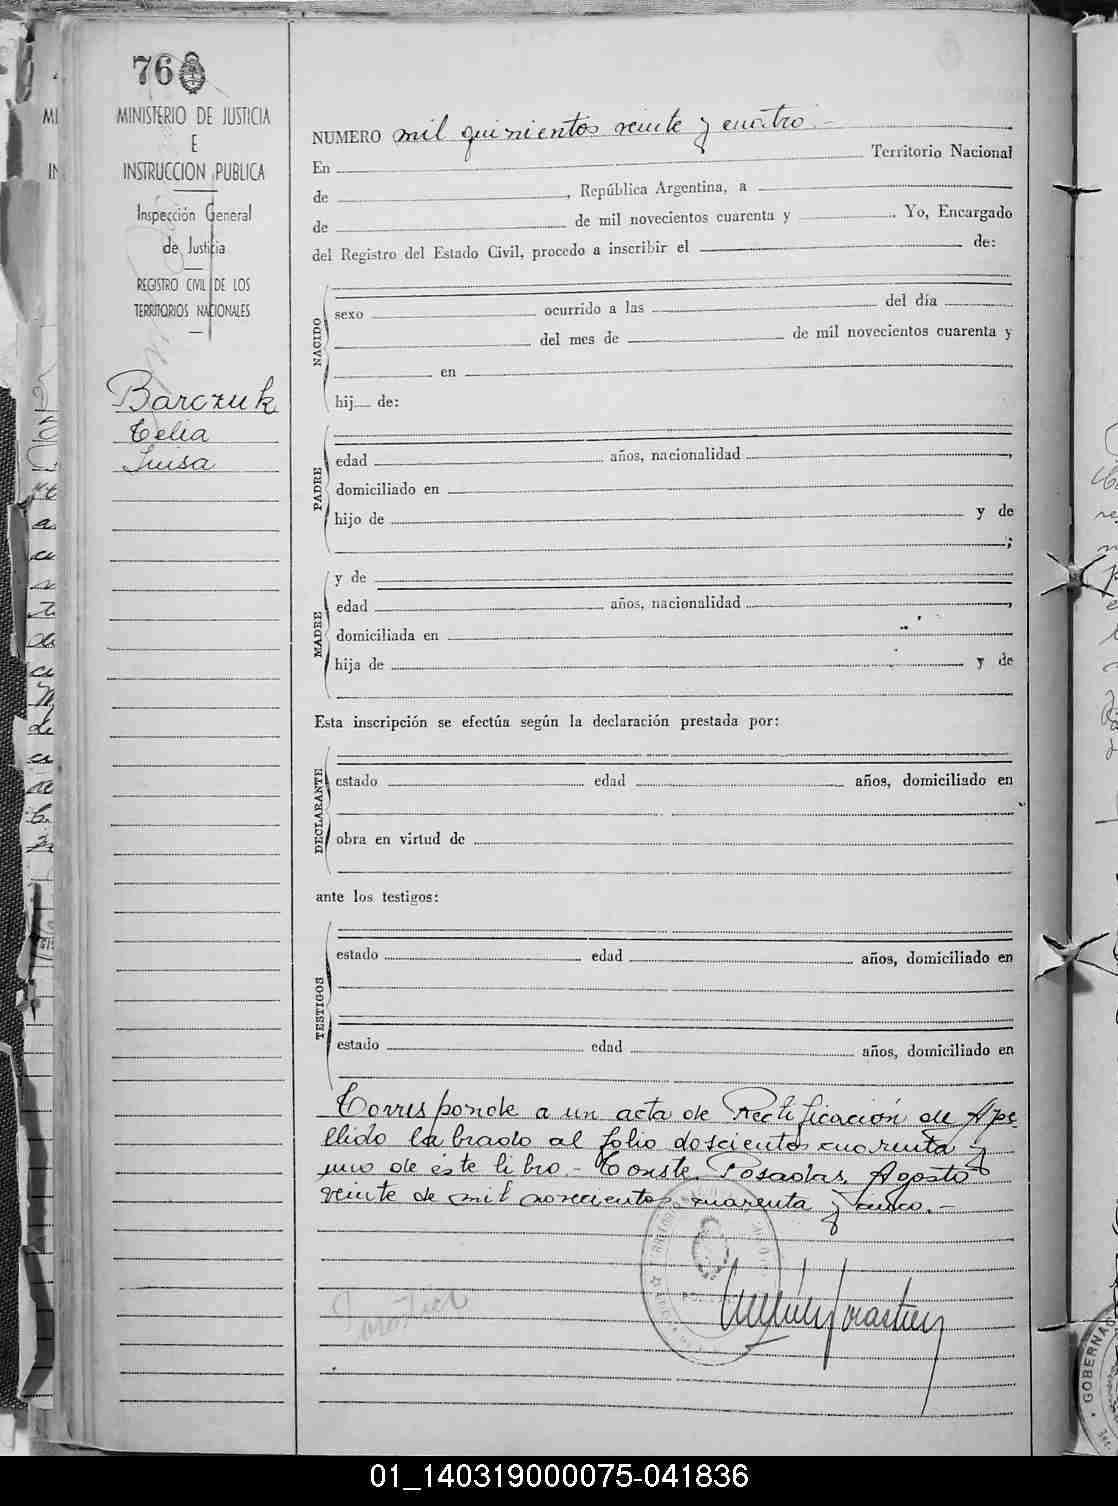 76
MINISTERIO DE JUSTICIA
E
INSTRUCCION PUBLICA
Inspección General
de Justicia
REGISTRO CIVIL DE LOS
TERRITORIOS NACIONALES
Barczuk
Celia
Luisa
NUMERO mil quinientos veinte y cuatro.-
En Territorio Nacional
de , República Argentina, a
de de mil novecientos cuarenta y . Yo, Encargado
del Registro del Estado Civil, procedo a inscribir el de:
NACIDO
sexo ocurrido a las del día
del mes de de mil novecientos cuarenta y
en
hij de:
PADRE
edad años, nacionalidad ,
domiciliado en
hijo de y de
;
MADRE
y de
edad años, nacionalidad ,
domiciliada en
hija de y de
Esta inscripción se efectúa según la declaración prestada por:
DECLARANTE
estado edad años, domiciliado en
obra en virtud de
ante los testigos:
TESTIGOS
estado edad años, domiciliado en
estado edad años, domiciliado en
Corresponde a un acta de Rectificación de Ape
llido labrado al folio doscientos cuarenta y
uno de éste libro.- Conste. Posadas, Agosto
veinte de mil novecientos cuarenta y cinco.-
GOBERNAC
01_140319000075-041836